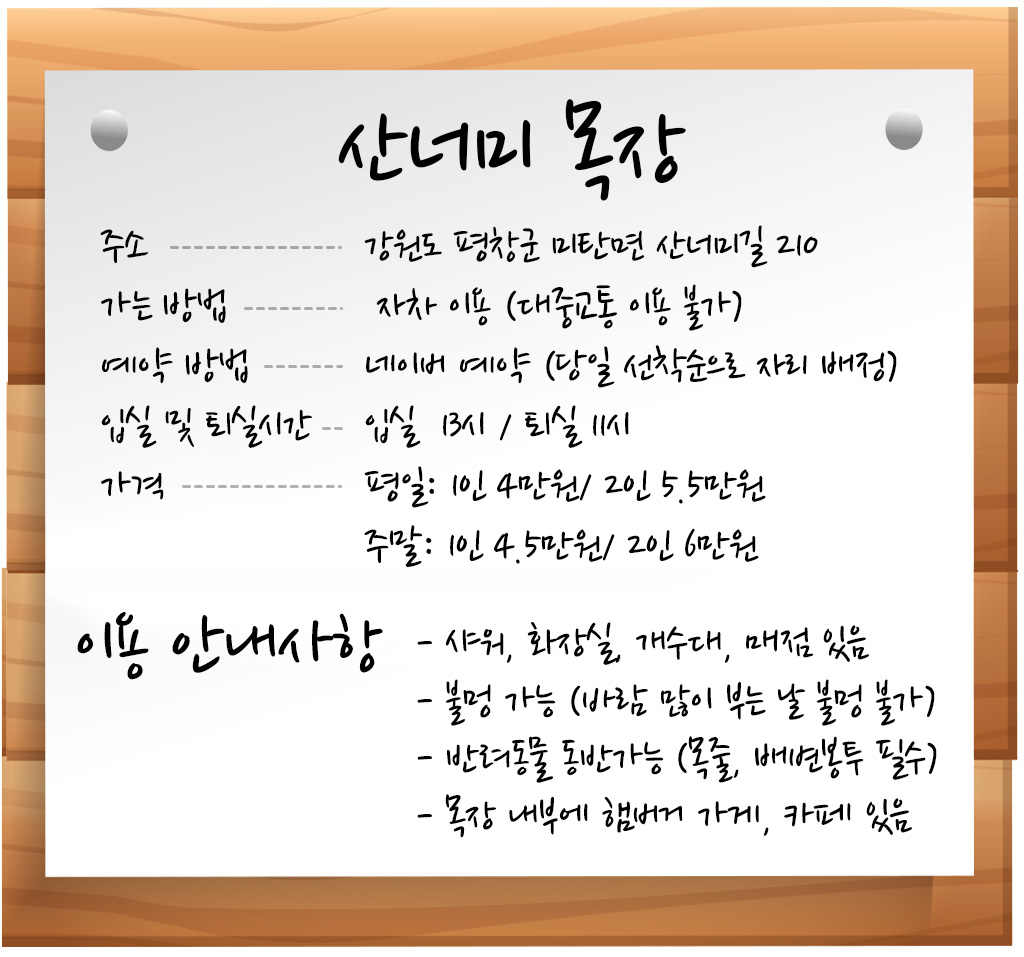 산너미 목장
주소 ---------------- 강원도 평창군 미탄면 산너미길 210
가는 방법 --------- 자차 이용 (대중교통 이용 불가)
예약 방법 ------- 네이버 예약 (당일 선착순으로 자리 배정)
입실 및 퇴실시간 -- 입실 13시 / 퇴실 11시
가격 -------------- 평일: 1인 4만원/ 2인 5.5만원
주말: 1인 4.5만원/ 2인 6만원
이용 안내사항 - 샤워, 화장실, 개수대, 매점 있음
- 불멍 가능 (바람 많이 부는 날 불멍 불가)
- 반려동물 동반가능 (목줄, 배변봉투 필수)
- 목장 내부에 햄버거 가게, 카페 있음